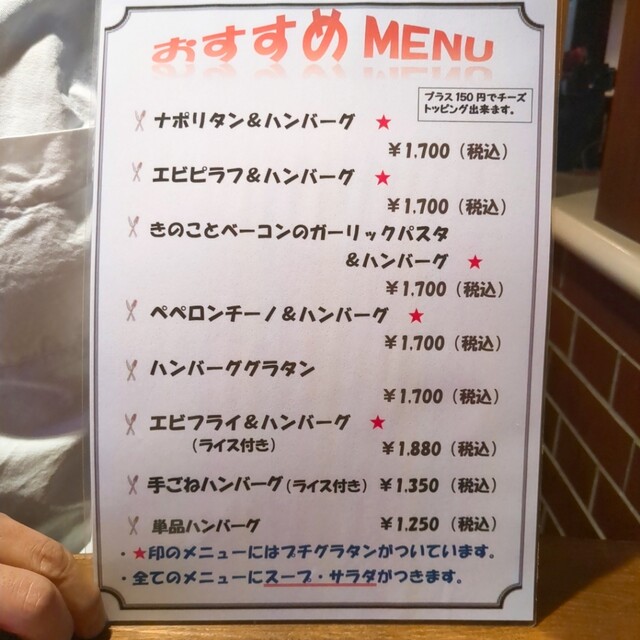 おすすめ MENU
プラス150円でチーズ
トッピング出来ます。
ナポリタン＆ハンバーグ ★
￥1.700（税込）
エビピラフ＆ハンバーグ ★
￥1.700（税込）
きのことベーコンのガーリックパスタ
＆ハンバーグ ★
￥1.700（税込）
ペペロンチーノ＆ハンバーグ ★
￥1.700（税込）
ハンバーググラタン
￥1.700（税込）
エビフライ＆ハンバーグ ★
（ライス付き） ￥1.880（税込）
手ごねハンバーグ（ライス付き） ￥1.350（税込）
単品ハンバーグ ￥1.250（税込）
・★印のメニューにはプチグラタンがついています。
・全てのメニューにスープ・サラダがつきます。